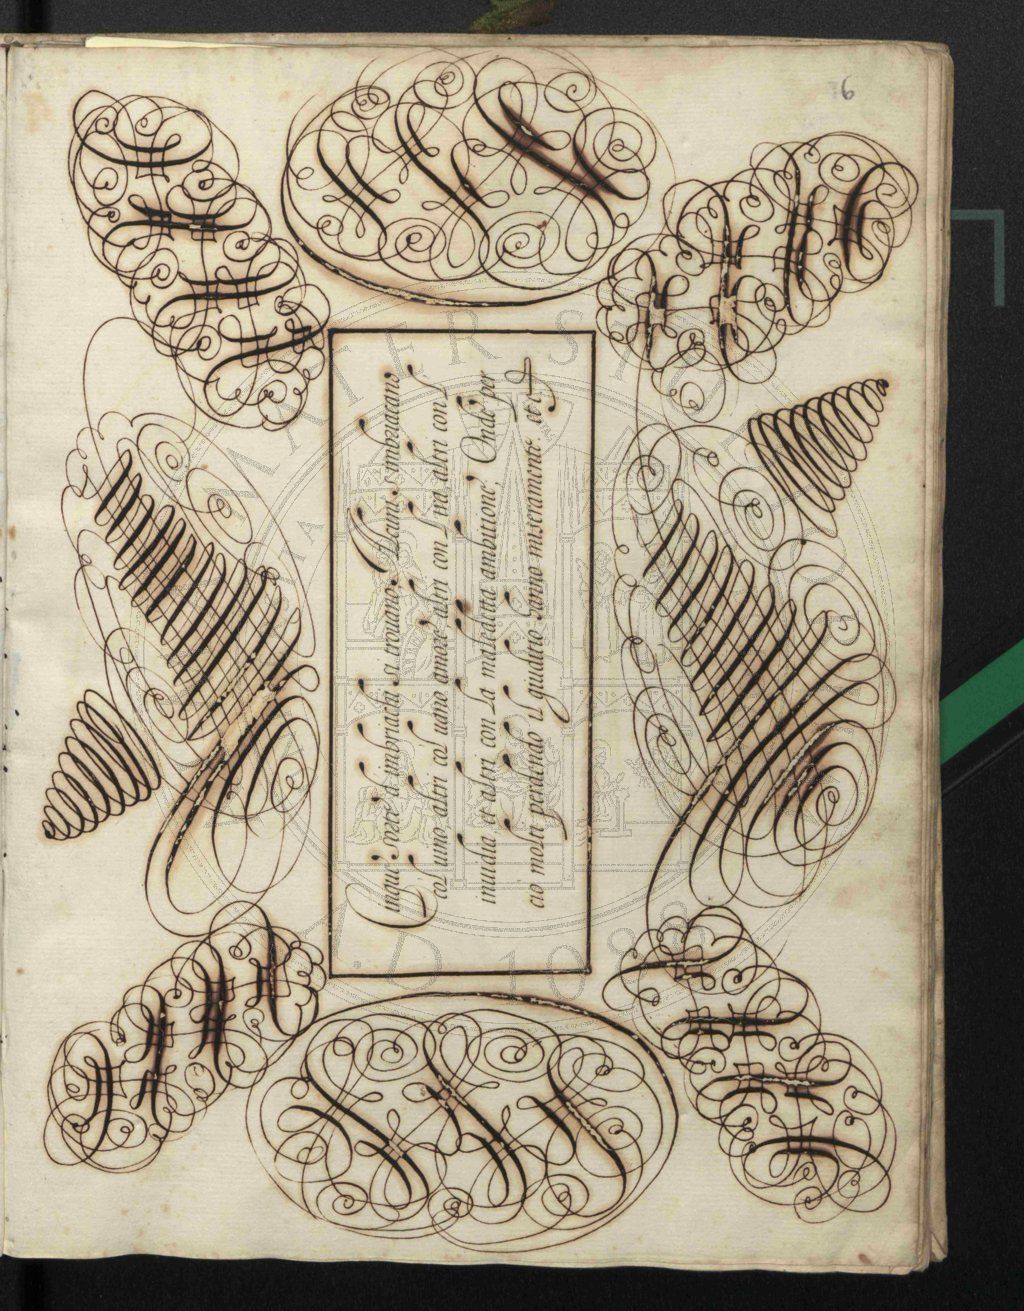 Cinque sorte d'imbriachi si trouano, Alcuni s'imbriacano
co'l uino altri co'l uano amore altri con l'ira altri con l'
inuidia et altri con la maledetta ambitione, Onde per
ciò molti perdendo il gaudio uanno miseramente. et cet.
16